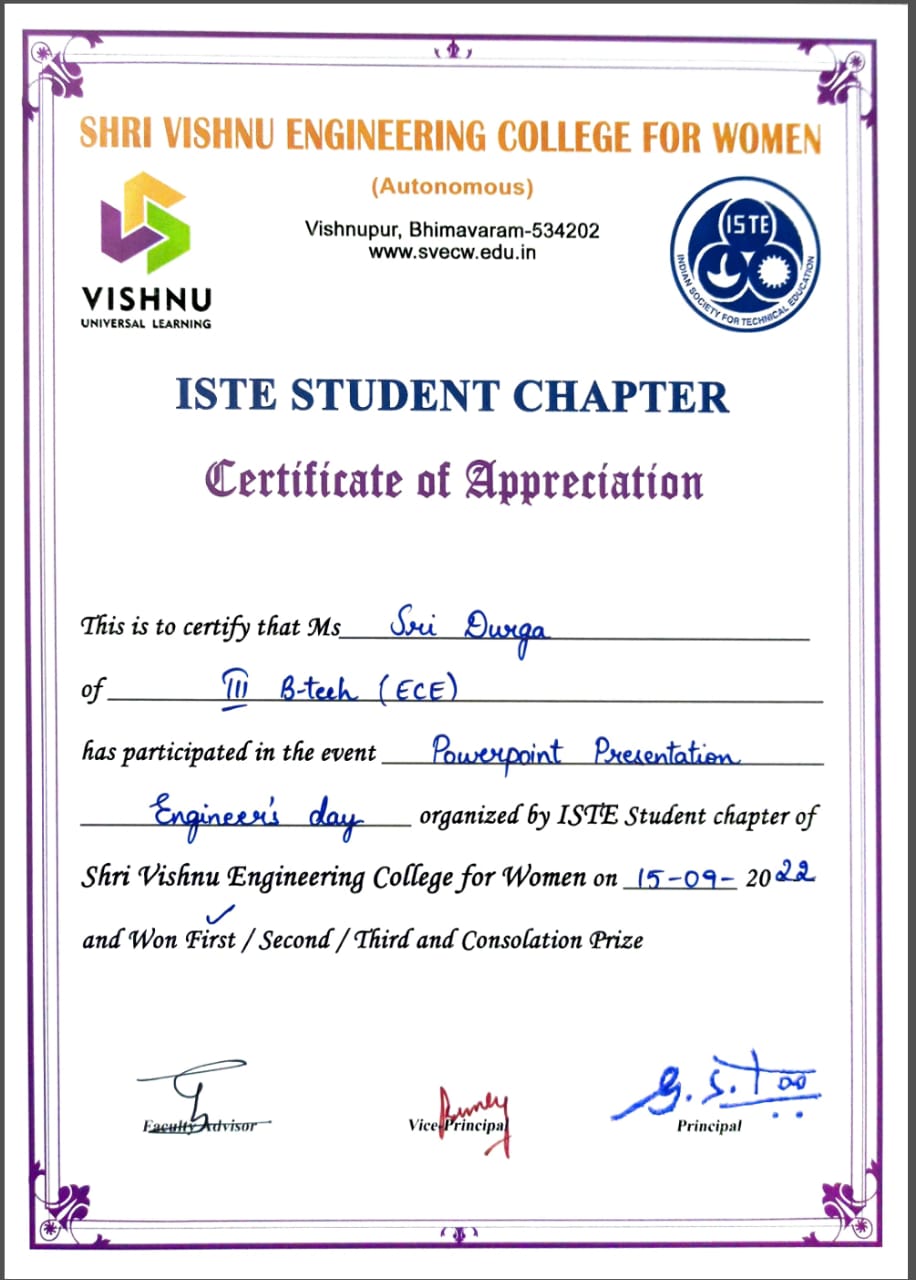 SHRI VISHNU ENGINEERING COLLEGE FOR WOMEN
(Autonomous)
Vishnupur, Bhimavaram-534202
www.svecw.edu.in
VISHNU
UNIVERSAL LEARNING
ISTE
INDIAN SOCIETY FOR TECHNICAL EDUCATION
ISTE STUDENT CHAPTER
Certificate of Appreciation
This is to certify that Ms Sri Durga
of III B-tech (ECE)
has participated in the event Powerpoint Presentation
Engineer's day organized by ISTE Student chapter of
Shri Vishnu Engineering College for Women on 15-09- 2022
and Won First / Second / Third and Consolation Prize
Faculty Advisor
Vice-Principal
Principal